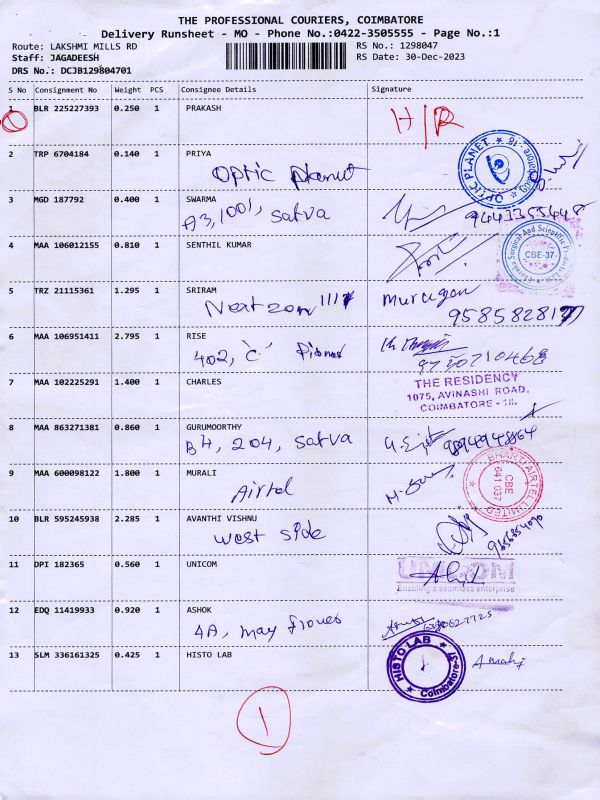 THE PROFESSIONAL COURIERS, COIMBATORE
Delivery Runsheet - MO - Phone No.:0422-3505555 - Page No.:1
Route: LAKSHMI MILLS RD
RS No.: 1298047
Staff: JAGADEESH
RS Date: 30-Dec-2023
DRS No.: DCJB129804701
S No Consignment No Weight PCS Consignee Details Signature
1 BLR 225227393 0.250 1 PRAKASH
H/R
2 TRP 6704184 0.140 1 PRIYA
Optic Planet
OPTIC PLANET
Coimbatore - 18
3 MGD 187792 0.400 1 SWARMA
A3, 1001, Satva
4 MAA 106012155 0.810 1 SENTHIL KUMAR
Surgical And Scientific
CBE-37
5 TRZ 21115361 1.295 1 SRIRAM
Murugan
6 MAA 106951411 2.795 1 RISE
402, 'C'
7 MAA 102225291 1.400 1 CHARLES
THE RESIDENCY
1075, AVINASHI ROAD,
COIMBATORE - 18.
8 MAA 863271381 0.860 1 GURUMOORTHY
B4, 204, Satva
9 MAA 600098122 1.800 1 MURALI
Airtel
BHARTI AIRTEL LIMITED
CBE
641 037
10 BLR 595245938 2.285 1 AVANTHI VISHNU
West side
11 DPI 182365 0.560 1 UNICOM
UNICOM
Enabling a seamless enterprise
12 EDQ 11419933 0.920 1 ASHOK
4A, may
13 SLM 336161325 0.425 1 HISTO LAB
HISTO LAB
Coimbatore-37
1